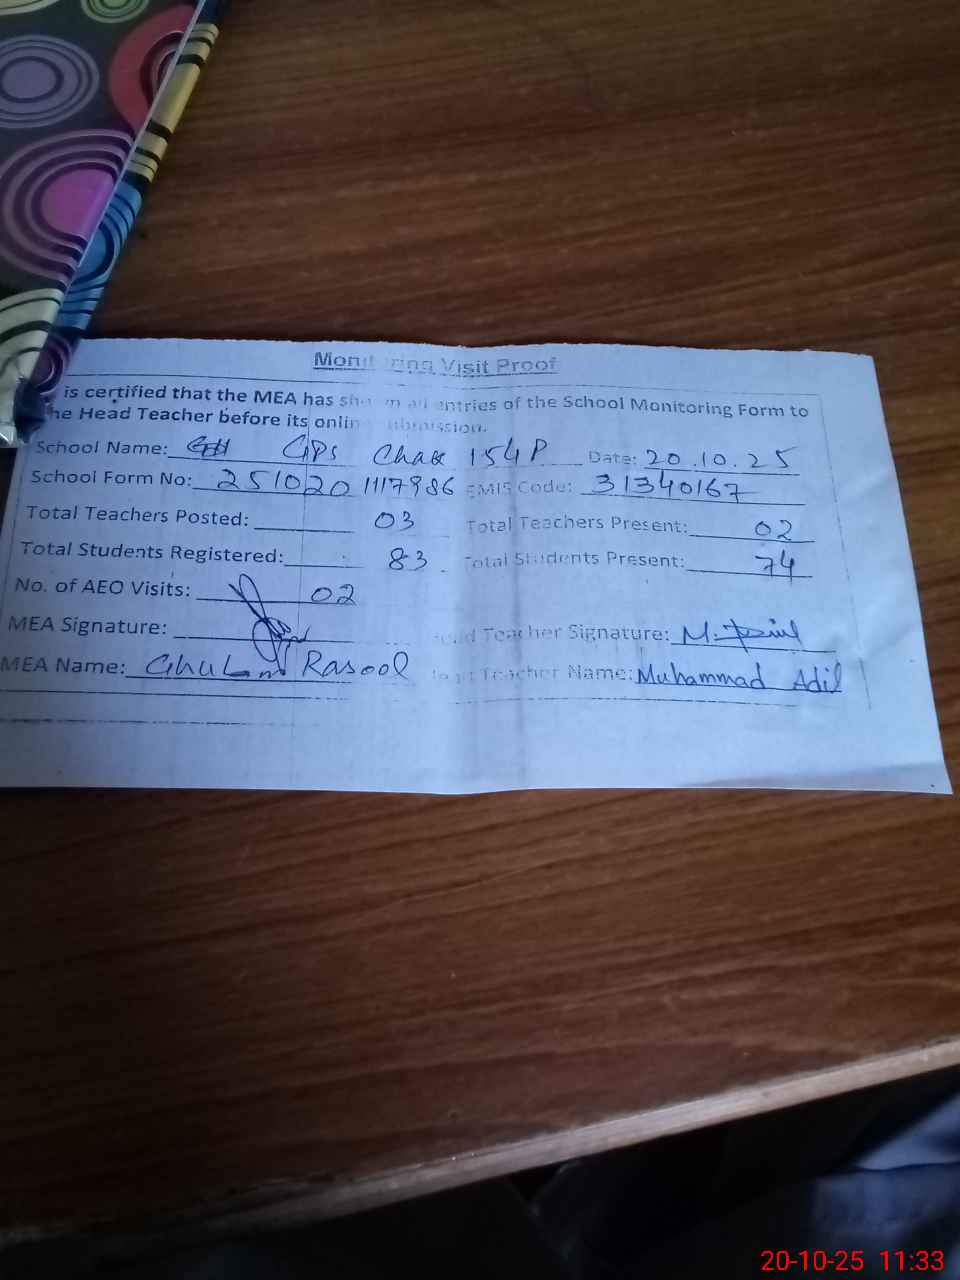 Monitoring Visit Proof
is certified that the MEA has shown all entries of the School Monitoring Form to
he Head Teacher before its online submission.
School Name: GPS Chak 154P Date: 20.10.25
School Form No: 2510201117986 EMIS Code: 31340167
Total Teachers Posted: 03 Total Teachers Present: 02
Total Students Registered: 83 Total Students Present: 74
No. of AEO Visits: 02
MEA Signature: Head Teacher Signature: M.
MEA Name: Ghulam Rasool Head Teacher Name: Muhammad Adil
20-10-25 11:33